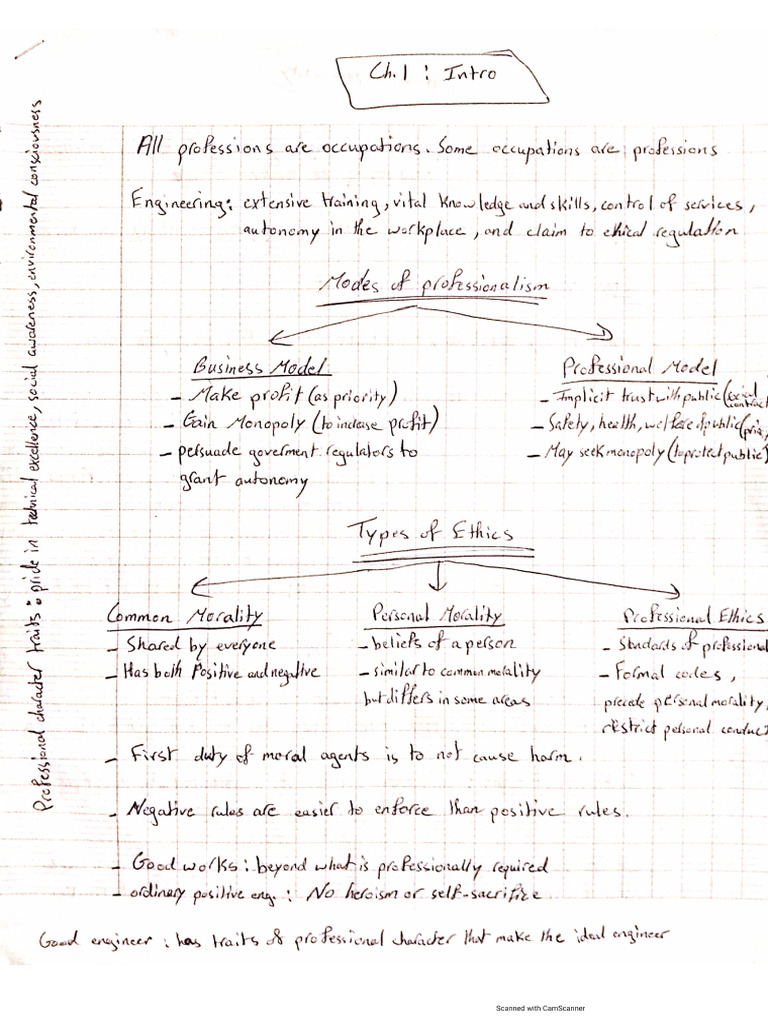 Ch.1 : Intro
All professions are occupations. Some occupations are professions
Engineering: extensive training, vital knowledge and skills, control of services,
autonomy in the workplace, and claim to ethical regulation
Modes of professionalism
Business Model
- Make profit (as priority)
- Gain Monopoly (to increase profit)
- persuade goverment regulators to
grant autonomy
Professional Model
- Implicit trust with public (social
contract
- Safety, health, welfare of public (prio
- May seek monopoly (to protect public)
Types of Ethics
Common Morality
- Shared by everyone
- Has both Positive and negative
Personal Morality
- beliefs of a person
- similar to common morality
but differs in some areas
Professional Ethics
- Standards of professional
- Formal codes,
precede personal morality,
restrict personal conduct
- First duty of moral agents is to not cause harm.
- Negative rules are easier to enforce than positive rules.
- Good works: beyond what is professionally required
- ordinary positive eng. : No heroism or self-sacrifice
Good engineer : has traits of professional character that make the ideal engineer
Professional character traits: pride in technical excellence, social awareness, environmental consciousness
Scanned with CamScanner